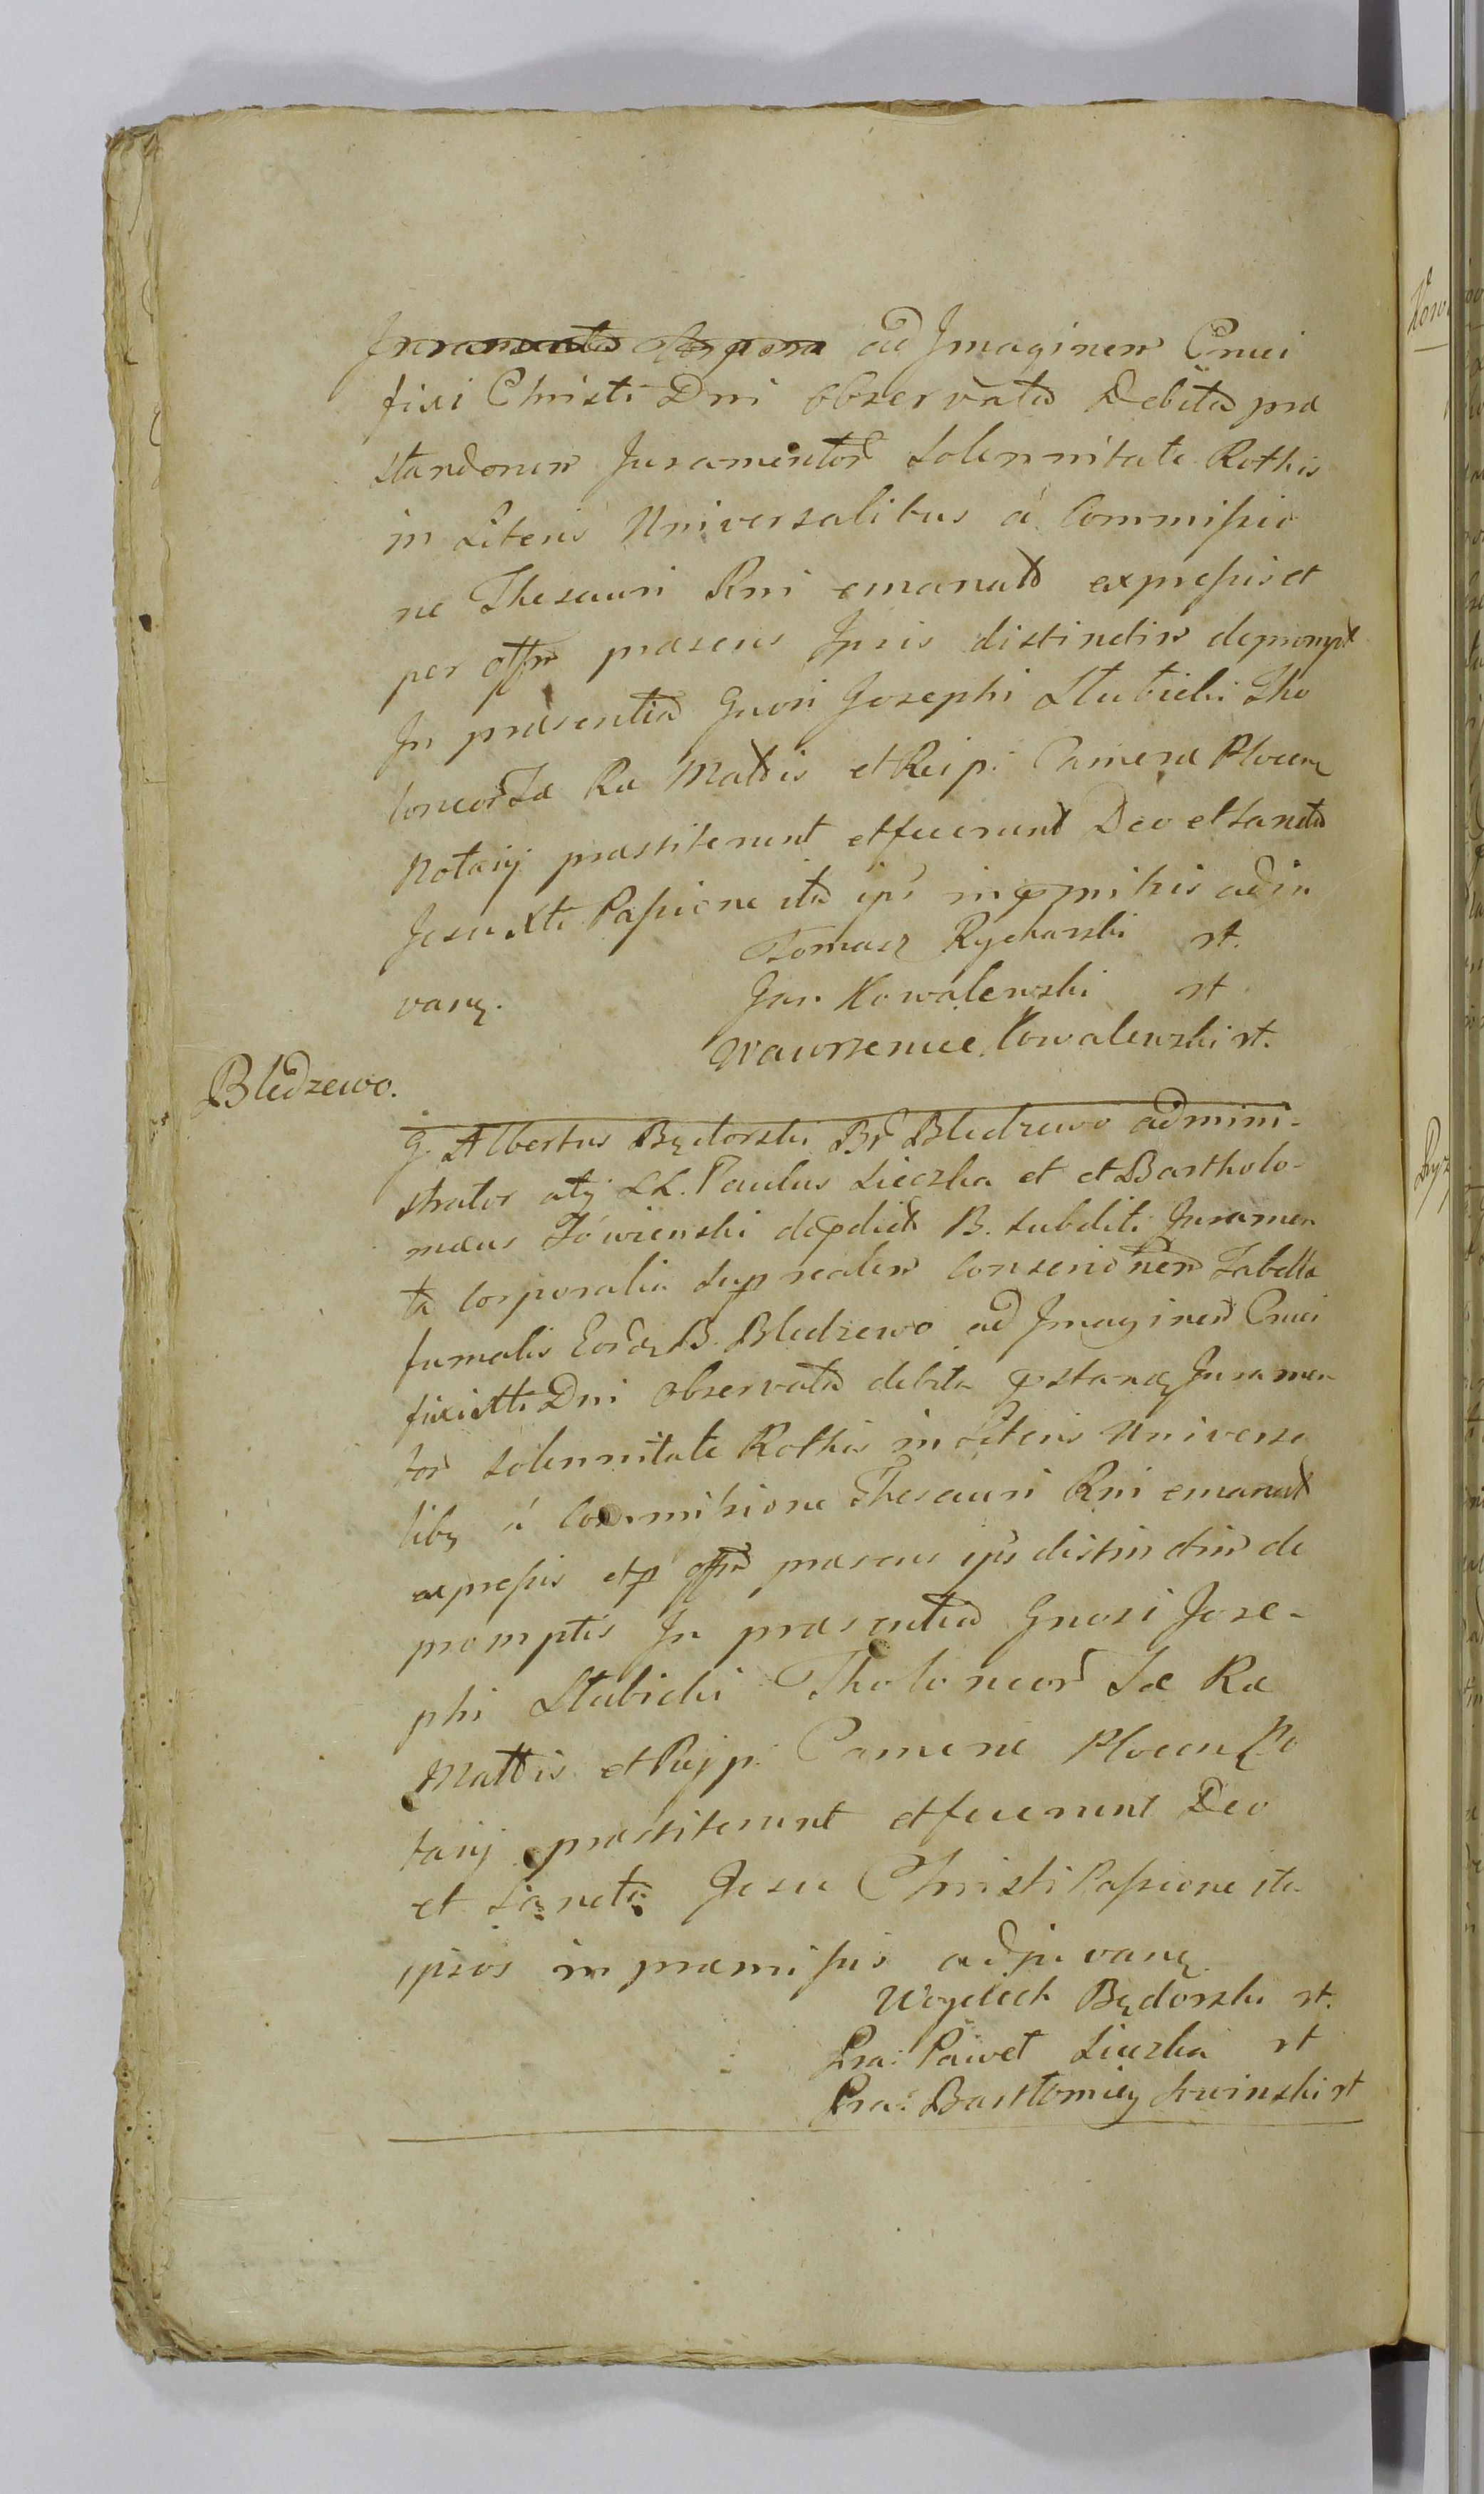 Juramenta Corpora ad Jmaginem Cruci
fixi Christi Dni observata Debita præ
standorum Juramentor Solennitate Rothis
in Literis Universalibus á Commissio
ne Thesauri Rni emanat expressis et
per offm præsens Ipsis distinctim deprompt
In præsentia Gnori Josephi Stubicki Tho
loneor Sæ Ræ Mattis et Reip. Cameræ Plocen
Notarij præstiterunt et fecerunt Deo et Sancta
Jesu Xti Passione ita ips in præmissis adju
van.
Tomasz Rycharski st.
Jan Kowalewski st
Wawrzeniec Kowalewski st.
Bledzewo.
G. Albertus Będorski Br Bledzewo admini-
strator atq LL. Paulus Sieczka et et Bartholo-
mæus depdict B. Subditi Juramen
ta Corporalia Sup realem Tabella
fumalis B. Bledzewo ad Jmaginem Cruci
fixi Xti Dni observata debita pstand Juramen
tor Solennitate Rothis in Literis Universa
libq á Commissione Thesauri Rni emanat
expressis et p offm præsens ips distinctim de
promptis In præsentia Gnosi Jose-
phi Stubicki Tholoneor Sæ Ræ
Mattis et Reip. Cameræ Plocen No
tarij præstiterunt et fecerunt Deo
et Sancta Jesu Christi Passione ita
ipsos in præmissis adjuvan
Woyciech Będorski st.
Pra: Paweł Sieczka st
Pra: Bartłomiey st